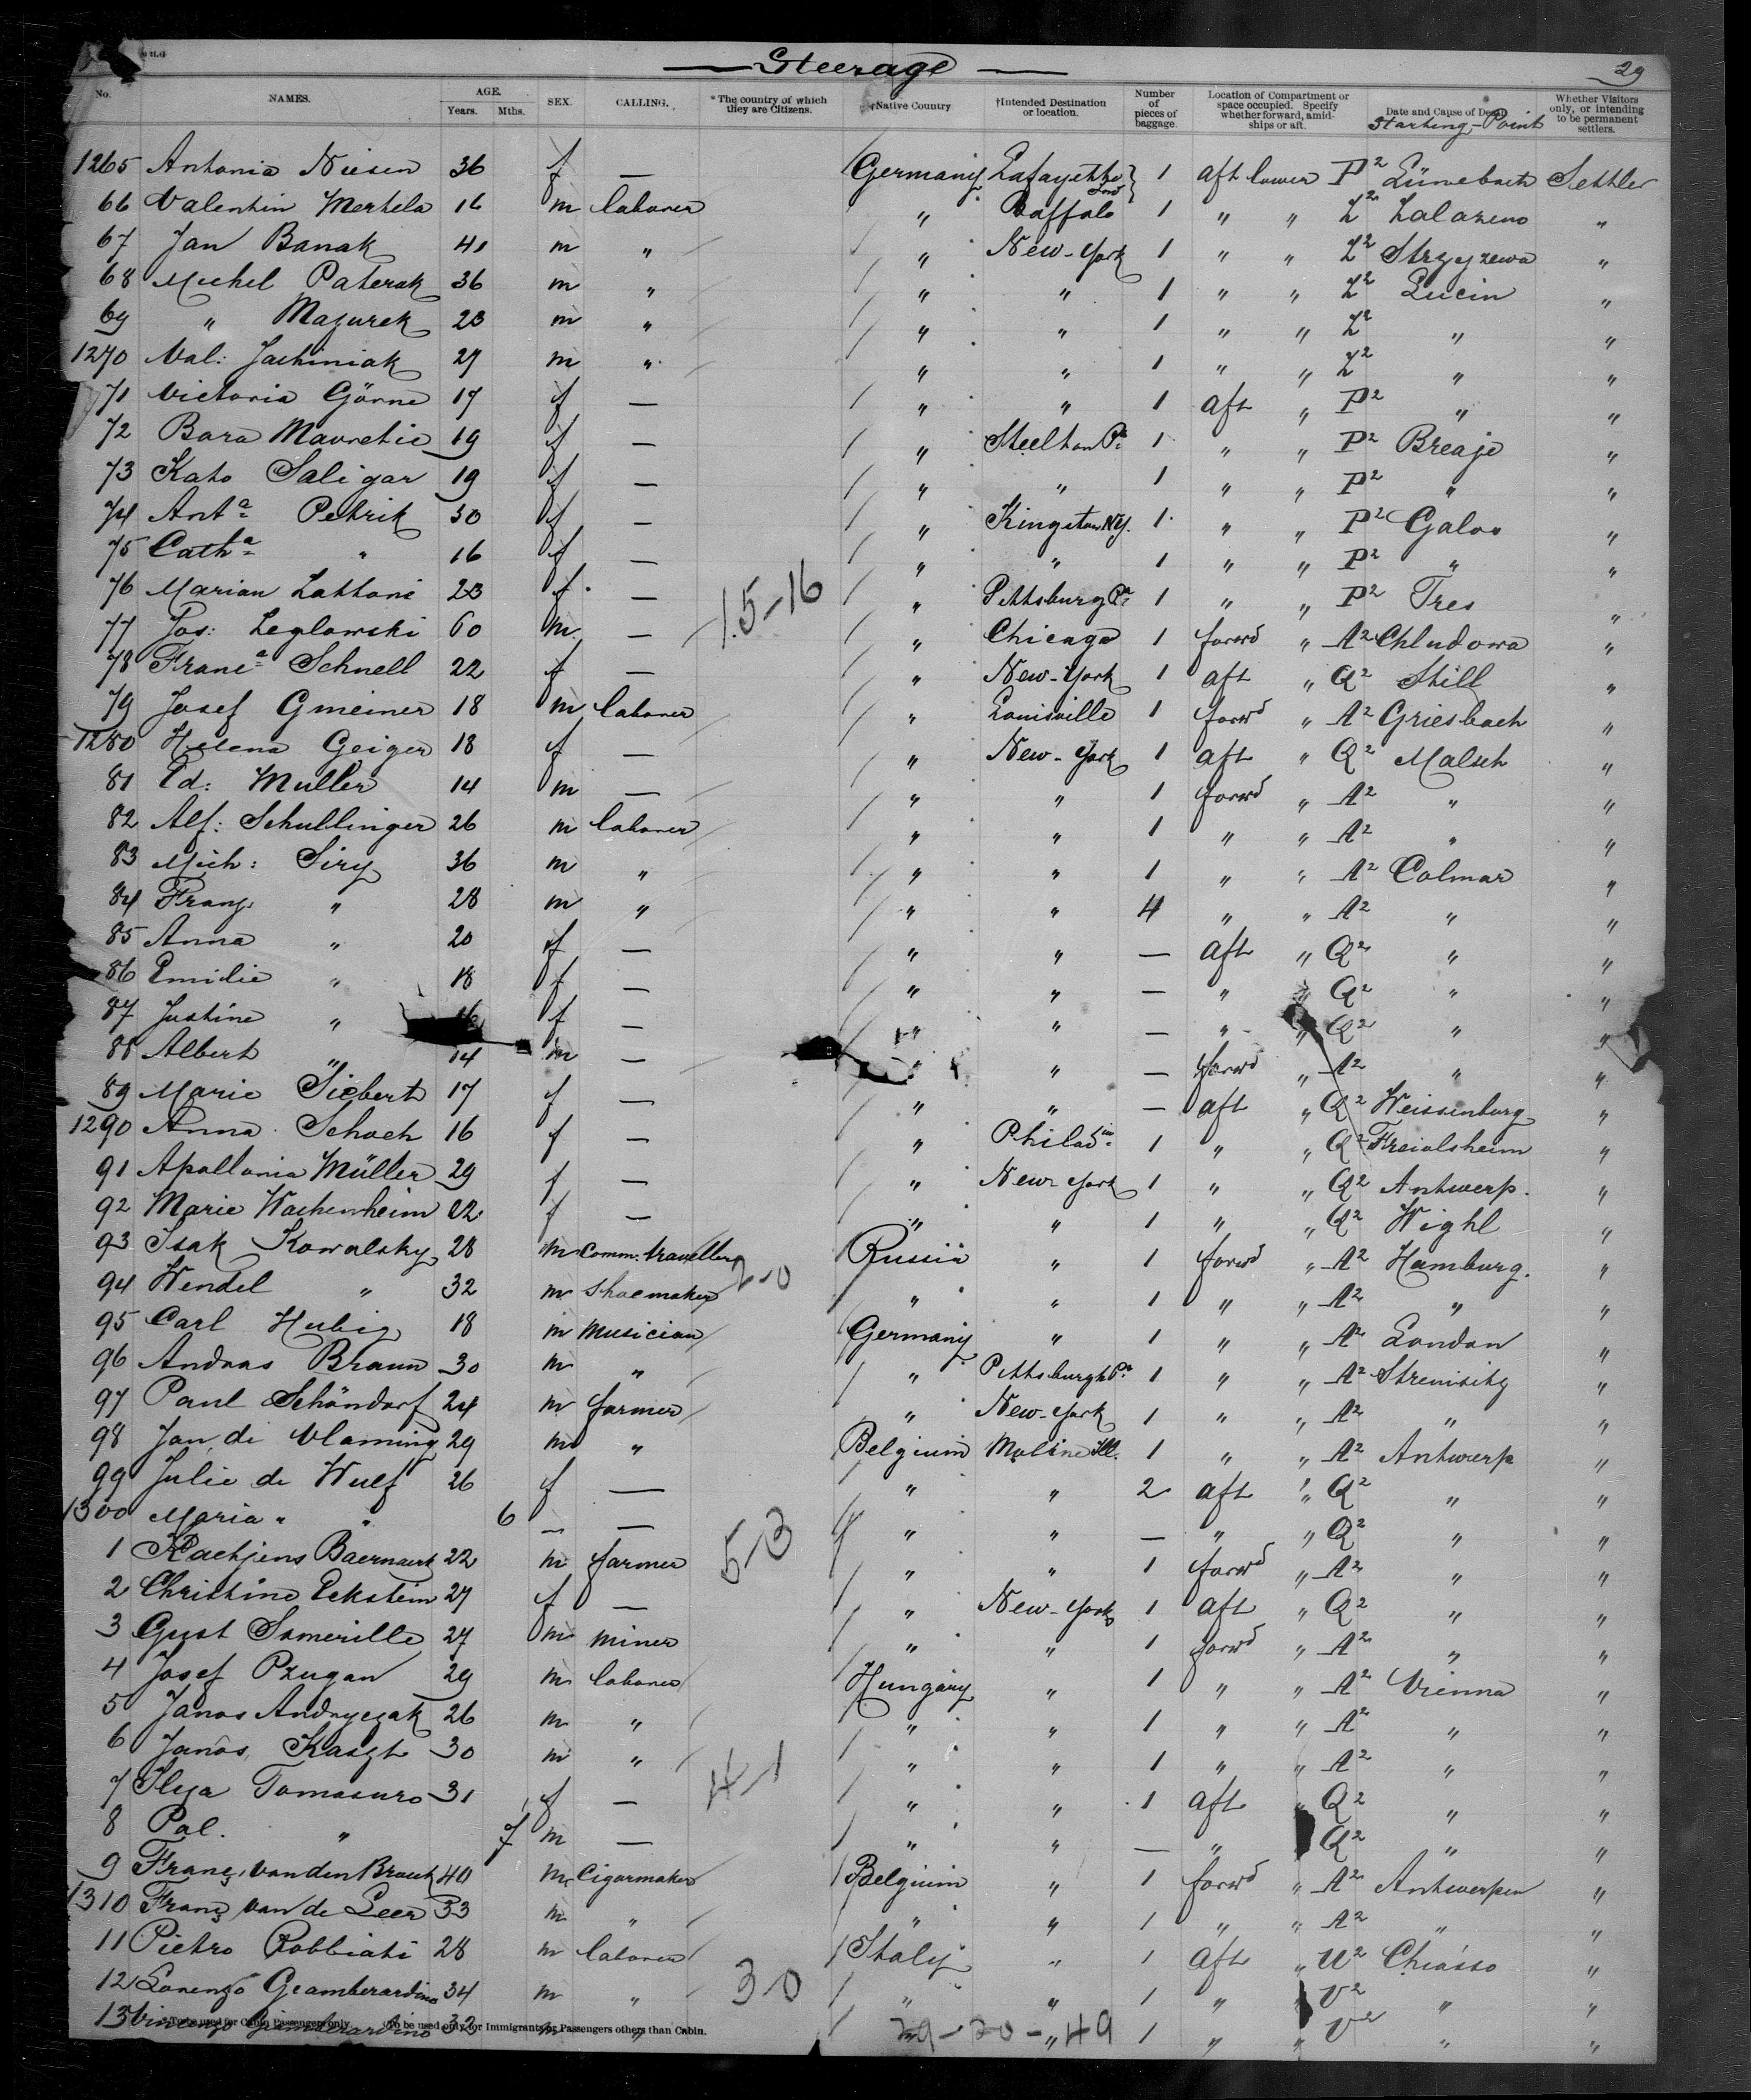 Steerage
29
No. NAMES. AGE. Years. Mths. SEX. CALLING. *The country of which they are Citizens. †Native Country †Intended Destination or location. Number of pieces of baggage. Location of Compartment or space occupied. Specify whether forward, amidships or aft. Date and Cause of Death Starting-Point Whether Visitors only, or intending to be permanent settlers.
1265 Antonia Niesen 36 f — Germany Lafayette Ind 1 aft lower P2 Lünebach Settler
66 Valentin Mertela 16 m laborer " Buffalo 1 " " Z2 "
67 Jan Banak 41 m " " New-York 1 " " Z2 Strzyzewa "
68 Michel Paterak 36 m " " " 1 " " Z2 Lucin "
69 " Mazurek 23 m " " " 1 " " Z2 " "
1270 Val: Jachiniak 27 m " " " 1 " " Z2 " "
71 Victoria Görne 17 f — " " 1 aft " P2 " "
72 Bara Mavretic 19 f — " Steelton Pa 1 " " P2 Breaje "
73 Kato Saligar 19 f — " " 1 " " P2 " "
74 Anta Petrik 30 f — " Kingston NY. 1 " " P2 Galos "
75 Catha " 16 f — " " 1 " " P2 " "
76 Marian Lattoni 23 f — 15-16 " Pittsburg Pa 1 " " P2 Tres "
77 Jos: Leglowski 60 m — " Chicago 1 forwd " A2 Chludowa "
78 Franca Schnell 22 f — " New-York 1 aft " Q2 Still "
79 Josef Gmeiner 18 m laborer " Louisville 1 forwd " A2 Griesbach "
1280 Helena Geiger 18 f — " New-York 1 aft " Q2 Malsch "
81 Ed: Muller 14 m — " " 1 forwd " A2 " "
82 Alf: Schullinger 26 m laborer " " 1 " " A2 " "
83 Mich: Siry 36 m " " " 1 " " A2 Colmar "
84 Franz " 28 m " " " 4 " " A2 " "
85 Anna " 20 f — " " — aft " Q2 " "
86 Emilie " 18 f — " " — " " Q2 " "
87 Justine " 16 f — " " — " " Q2 " "
88 Albert " 14 m — " " — forwd " A2 " "
89 Marie Siebert 17 f — " " — aft " Q2 Weissenburg "
1290 Anna Schoch 16 f — " Philadia 1 " " Q2 Freiolsheim "
91 Apollonia Müller 29 f — " New-York 1 " " Q2 Antwerp. "
92 Marie Wachenheim 22 f — " " 1 " " Q2 Wighl "
93 Isak Kowalsky 28 m Comm: traveller 2-0 Russia " 1 forwd " A2 Hamburg. "
94 Wendel " 32 m Shoemaker " " 1 " " A2 " "
95 Carl Hubig 18 m Musician Germany " 1 " " A2 London "
96 Andras Braun 30 m " " Pittsburgh Pa 1 " " A2 "
97 Paul Schöndorf 24 m farmer " New-York 1 " " A2 " "
98 Jan de Vlaming 29 m " Belgium Moline Ill. 1 " " A2 Antwerp "
99 Julie de Wulf 26 f — " " 2 aft " Q2 " "
1300 Maria " " 6 — — " " — " " Q2 " "
1 Baernaert 22 m farmer 5-3 " " 1 forwd " A2 " "
2 Christine Eckstein 27 f — " New-York 1 aft " Q2 " "
3 Gust Somerille 27 m miner " " 1 forwd " A2 " "
4 Josef Pzugan 29 m laborer Hungary " 1 " " A2 Vienna "
5 Janos Andryczak 26 m " " " 1 " " A2 " "
6 Janos Kaszt 30 m " 4-1 " " 1 " " A2 " "
7 Ilya Tomasuro 31 f — " " 1 aft " Q2 " "
8 Pal. " 7 m — " " — " Q2 " "
9 Franz van den Brouck 40 m Cigarmaker Belgium " 1 forwd " A2 Antwerpen "
1310 Franz van de Leer 33 m " " " 1 " " A2 " "
11 Pietro Robbiati 28 m laborer Italy " 1 aft " U2 Chiasso "
12 Lorenzo Geamberardino 34 m " 3-0 " " 1 " V2 " "
13 Vincenzo Giamberardino 32 m " " 1 " " V2 " "
29-20-49
*To be used for Cabin Passengers only. †To be used only for Immigrants, or Passengers others than Cabin.